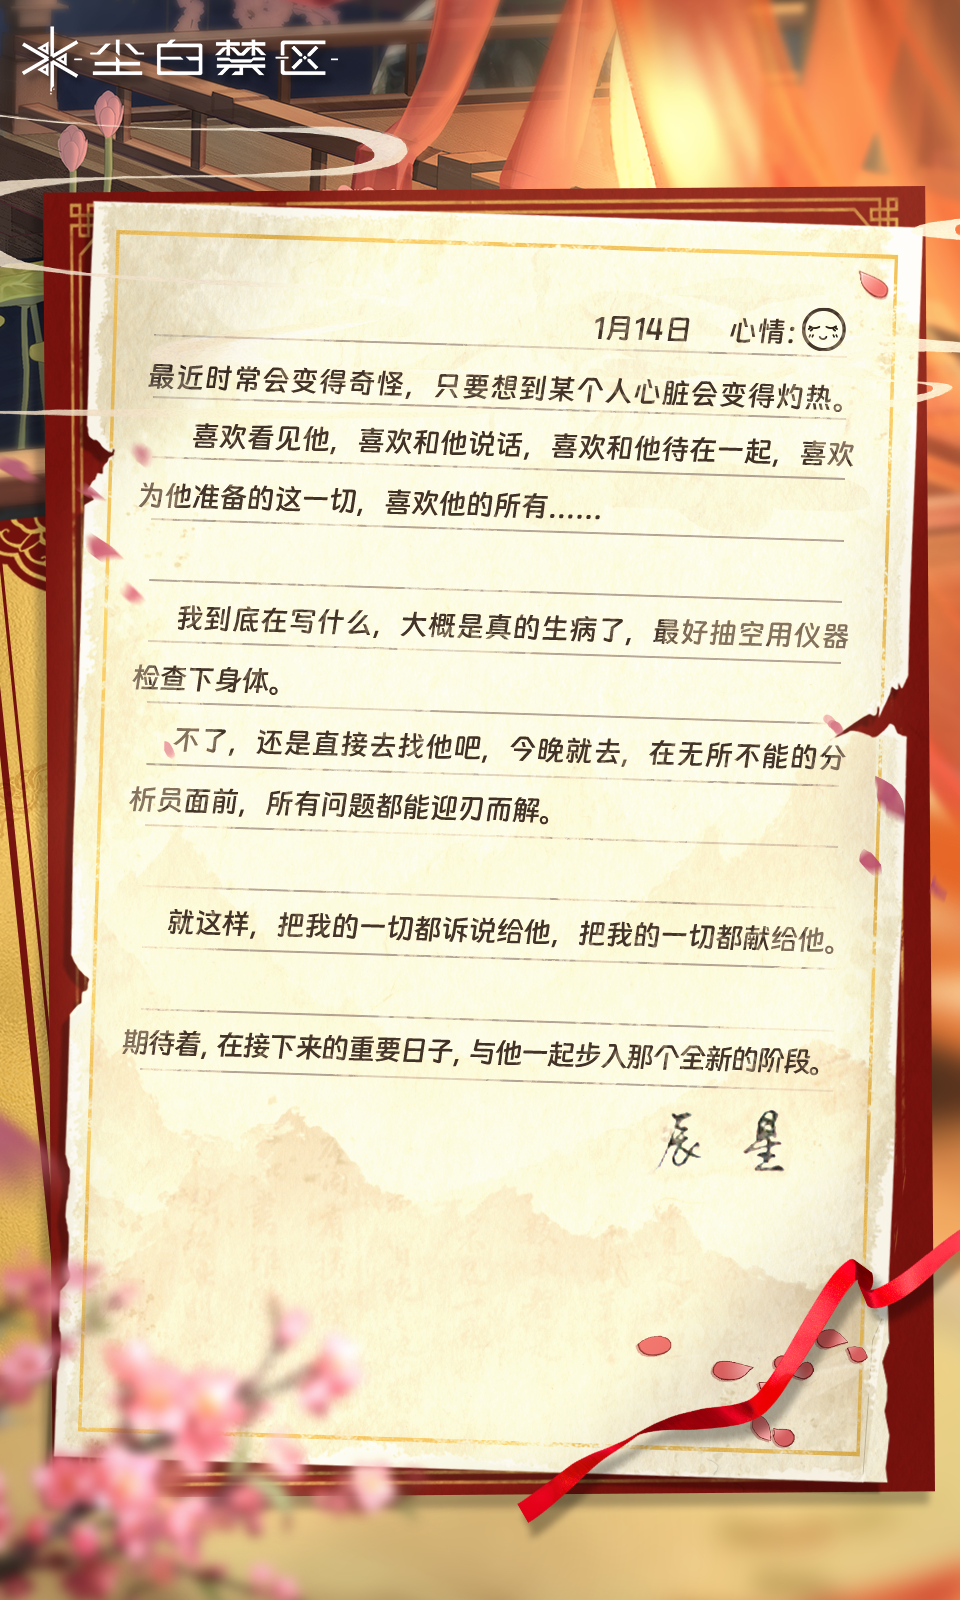 尘白禁区
1月14日 心情:
最近时常会变得奇怪，只要想到某个人心脏会变得灼热。
喜欢看见他，喜欢和他说话，喜欢和他待在一起，喜欢
为他准备的这一切，喜欢他的所有......
我到底在写什么，大概是真的生病了，最好抽空用仪器
检查下身体。
不了，还是直接去找他吧，今晚就去，在无所不能的分
析员面前，所有问题都能迎刃而解。
就这样，把我的一切都诉说给他，把我的一切都献给他。
期待着, 在接下来的重要日子, 与他一起步入那个全新的阶段。
辰 星